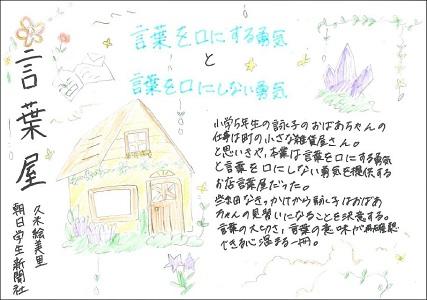 言葉を口にする勇気
と
言葉を口にしない勇気
言葉屋
久米絵美里
朝日学生新聞社
小学5年生の詠子のおばあちゃんの
仕事は町の小さな雑貨屋さん。
と思いきや、本業は言葉を口にする勇気
と言葉を口にしない勇気を提供する
お店言葉屋だった。
なきっかけから詠子はおばあ
ちゃんの見習いになることを決意する。
言葉の大切さ、言葉の意味が再確認
できる心温まる一冊。